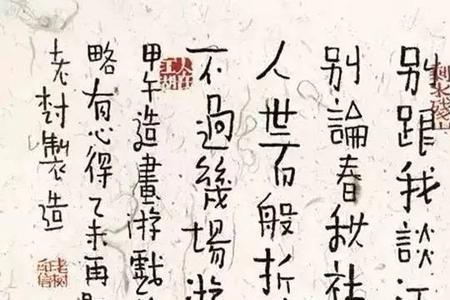 别跟我談
别論春秋社
人世百般折
不過幾場游
甲午造畫游點
略有心得乙未再
老树製造
人在江湖